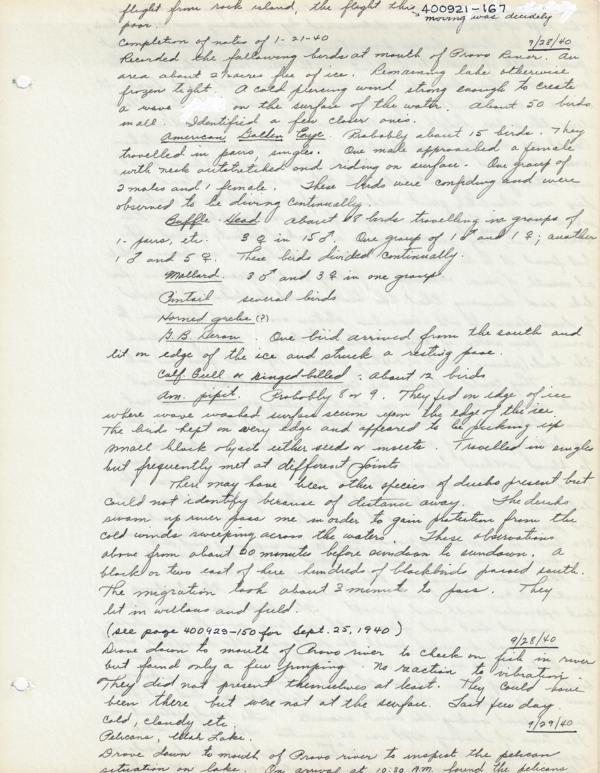 flight from rock island, the flight the 400921-167
poor. moving was decidedly
Completion of notes of 1-21-40 9/28/40
Recorded the following birds at mouth of Provo River. An
area about 2 acres free of ice. Remaining lake otherwise
frozen tight. A cold piercing wind strong enough to create
a wave on the surface of the water. About 50 birds
in all. Identified a few closer ones.
American Golden Eye. Probably about 15 birds. They
travelled in pairs, singles. One male approached a female
with neck outstretched and riding on surface. One group of
2 males and 1 female. These birds were confiding and were
observed to be diving continually.
Buffle-Head about 18 birds travelling in groups of
1- pairs, etc. 3 ♀ in 15 ♂. One group of 1 ♂ and 1 ♀; another
1 ♂ and 5 ♀. These birds divided continually.
Mallard. 3 ♂ and 3 ♀ in one group.
Pintail several birds
Horned grebe (?)
G.B. Heron. One bird arrived from the south and
lit on edge of the ice and struck a resting pose.
Calif. Gull or ringed-billed: about 12 birds
Am. pipit. Probably 8 or 9. They fed on edge of ice
where wave washed surface scum upon the edge of the ice.
The birds kept on very edge and appeared to be picking up
small black objects either seeds or insects. Travelled in singles
but frequently met at different points
There may have been other species of ducks present but
could not identify because of distance away. The ducks
swam up river pass me in order to gain protection from the
cold winds sweeping across the water. These observations
above from about 60 minutes before sundown to sundown. A
block or two east of here hundreds of blackbirds passed south.
The migration took about 3 minut to pass. They
lit in willows and field.
(see page 400923-150 for Sept. 25, 1940)
9/28/40
Drove down to mouth of Provo river to check on fish in river
but found only a few jumping. No reaction to vibration.
They did not present themselves at least. They could have
been there but were not at the surface. Last few day
cold, cloudy etc. 9/29/40
Pelicans, Utah Lake.
Drove down to mouth of Provo river to inspect the pelican
situation on lake. On arrival at 10:30 A.M. found the pelicans